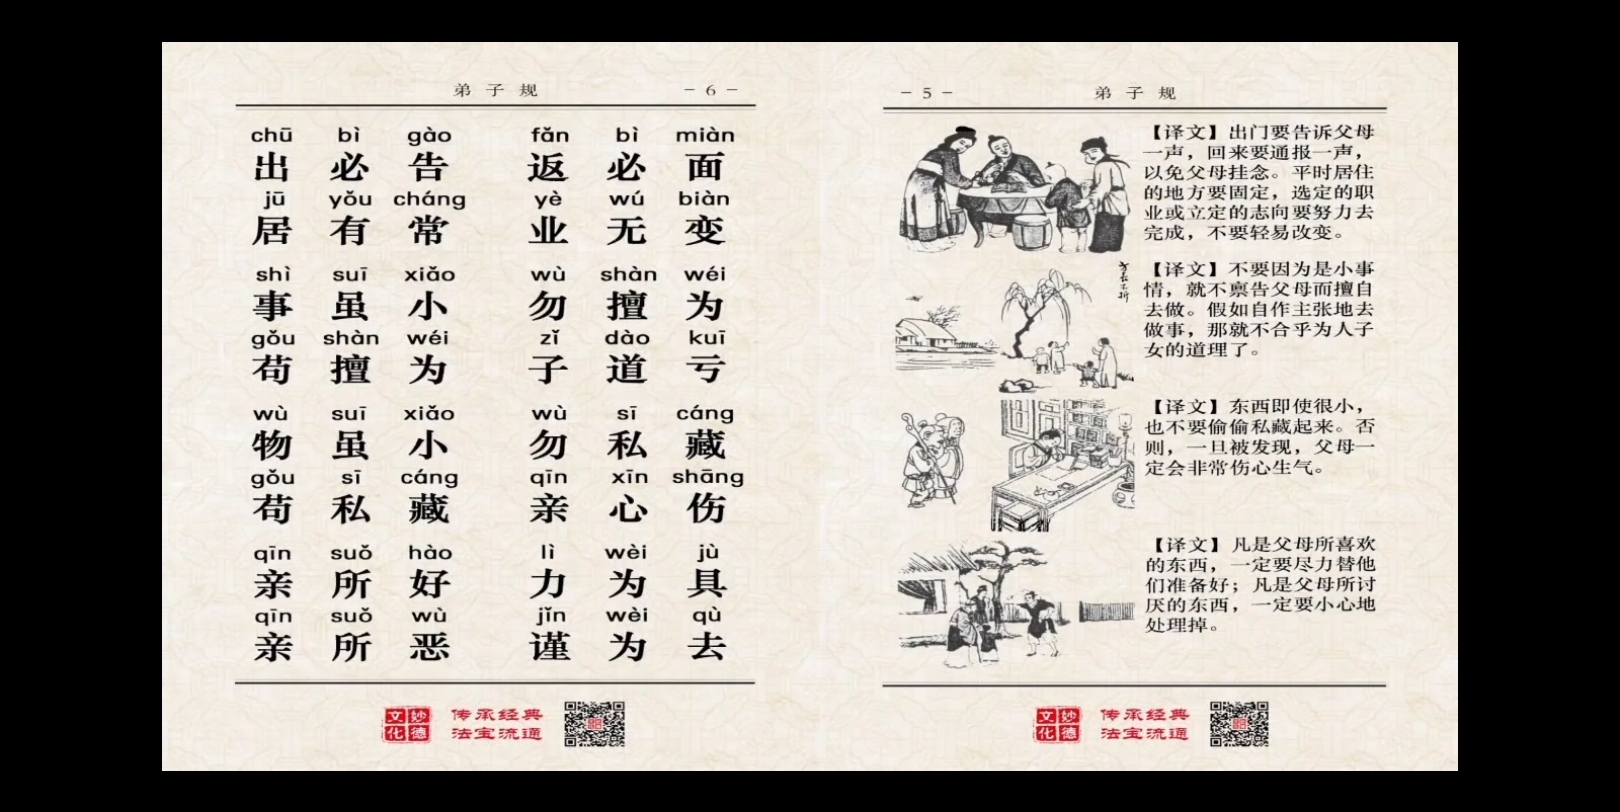 弟子规 -6-
chū bì gào fǎn bì miàn
出必告 返必面
jū yǒu cháng yè wú biàn
居有常 业无变
shì suī xiǎo wù shàn wéi
事虽小 勿擅为
gǒu shàn wéi zǐ dào kuī
苟擅为 子道亏
wù suī xiǎo wù sī cáng
物虽小 勿私藏
gǒu sī cáng qīn xīn shāng
苟私藏 亲心伤
qīn suǒ hào lì wèi jù
亲所好 力为具
qīn suǒ wù jǐn wèi qù
亲所恶 谨为去
妙德文化
传承经典
法宝流通
-5- 弟子规
【译文】出门要告诉父母
一声，回来要通报一声，
以免父母挂念。平时居住
的地方要固定，选定的职
业或立定的志向要努力去
完成，不要轻易改变。
方长不折
【译文】不要因为是小事
情，就不禀告父母而擅自
去做。假如自作主张地去
做事，那就不合乎为人子
女的道理了。
【译文】东西即使很小，
也不要偷偷私藏起来。否
则，一旦被发现，父母一
定会非常伤心生气。
【译文】凡是父母所喜欢
的东西，一定要尽力替他
们准备好；凡是父母所讨
厌的东西，一定要小心地
处理掉。
妙德文化
传承经典
法宝流通